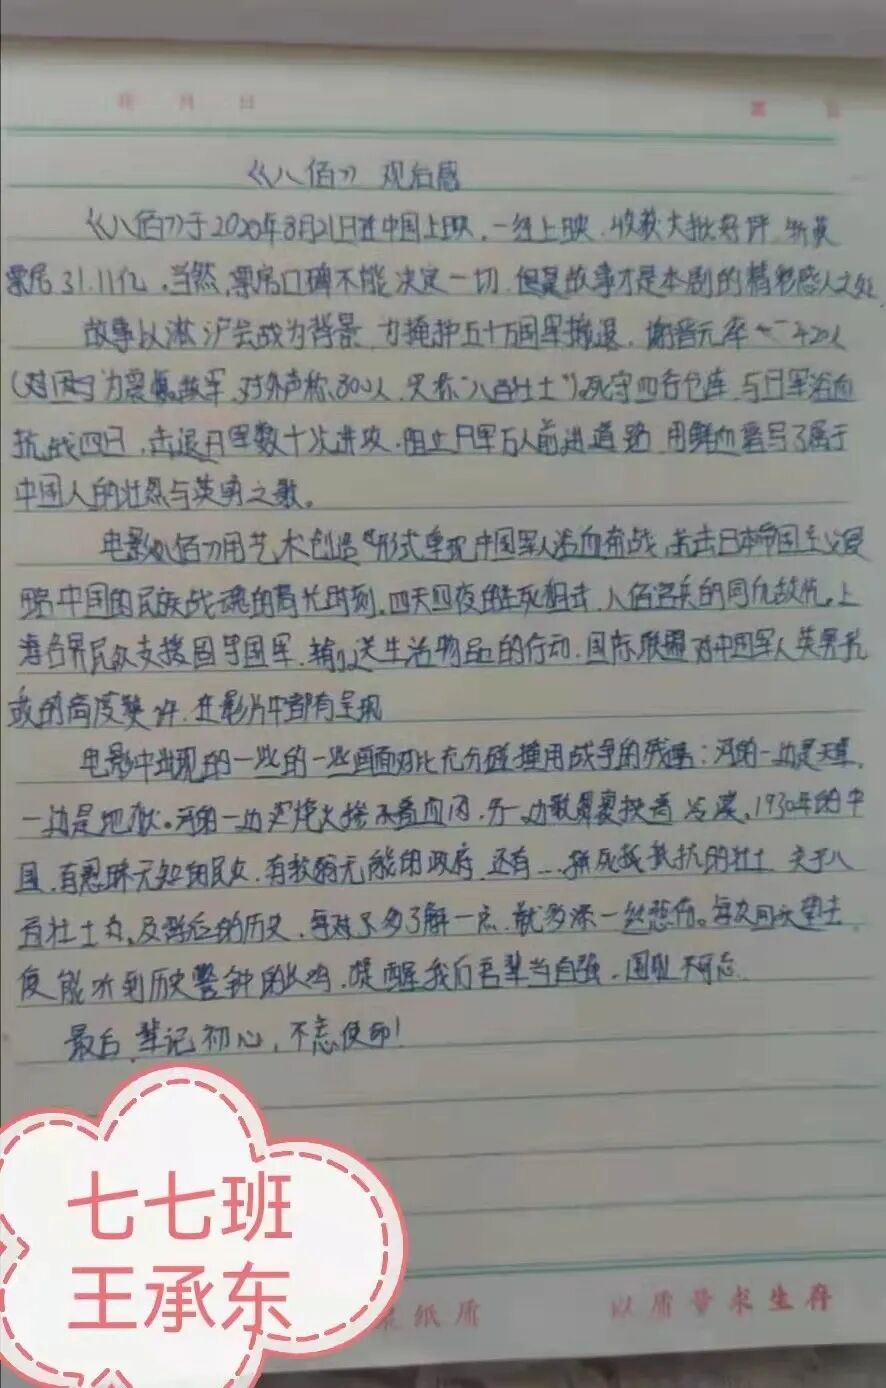 年 月 日
第 页
《八佰》观后感
《八佰》于2020年8月21日在中国上映,一经上映,收获大批好评,斩获
票房31.11亿。当然,票房口碑不能决定一切,但是故事才是本剧的精彩感人之处
故事以淞沪会战为背景,为掩护五十万国军撤退,谢晋元率 420人
(对 为震慑敌军,对外声称800人,又称"八百壮士")死守四行仓库,与日军浴血
抗战四日,击退日军数十次进攻,阻止日军万人前进道路,用鲜血书写了属于
中国人的壮烈与英勇之歌。
电影《八佰》用艺术创造形式重现中国军人浴血奋战,抗击日本帝国主义侵
略中国的民族战魂的高光时刻。四天四夜的 阻击,八佰官兵的同仇敌忾,上
海各界民众支援 国军,输送生活物品的行动,国际联盟对中国军人英勇抗
敌的高度赞许,在影片中都有呈现
电影中出现的一些的一些画面对比充分 战争的残酷:河的一边是天堂,
一边是地狱。河的一边是炮火 ,另一边歌舞裹挟着冷漠。1930年的中
国,有愚昧无知的民众,有软弱无能的政府,还有...拼死抵抵抗的壮士,关于八
百壮士 及背后的历史,每对多了解一点,就多添一丝悲伤。每次回头望去
便能听到历史警钟的长鸣,提醒我们吾辈当自强,国耻不可忘
最后,牢记初心,不忘使命!
七七班
王承东
纸质
以质量求生存